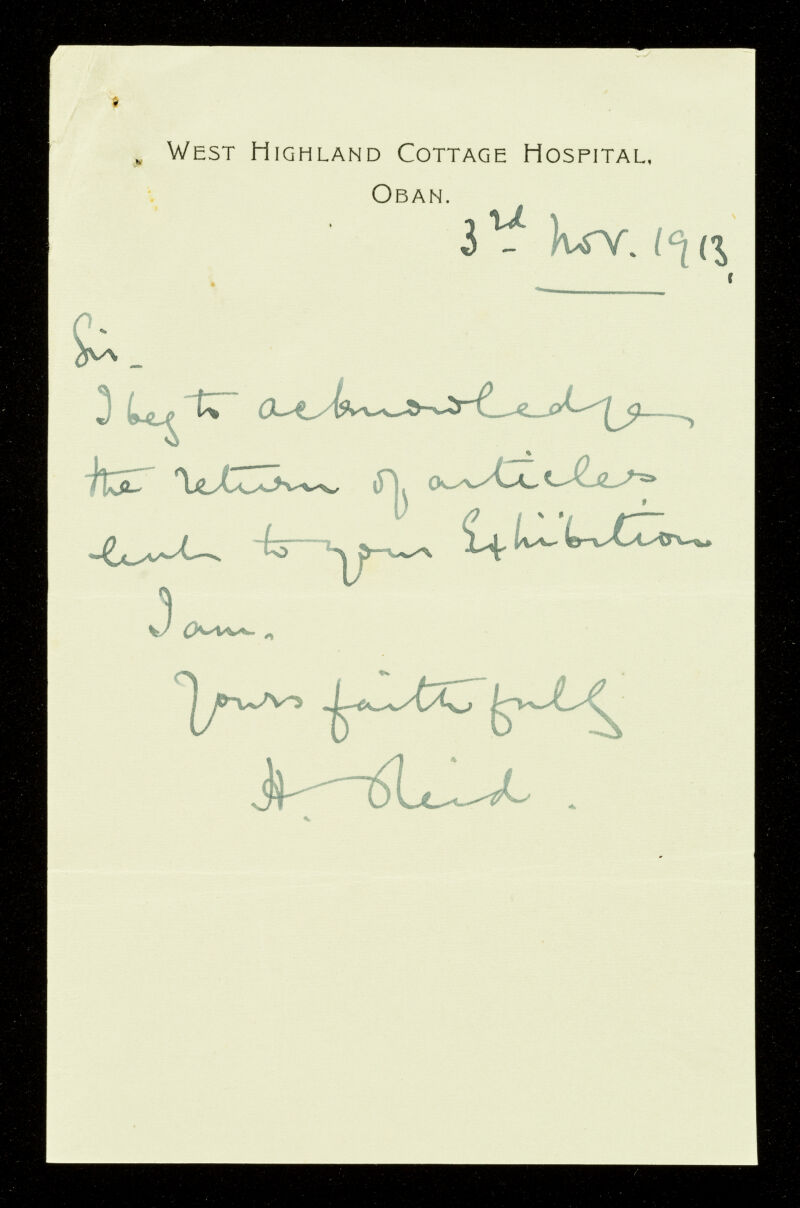 West Highland Cottage Hospital,
Oban.
3rd Nov. 1913,
Sir -
I beg to acknowledge
the return of articles
lent to your Exhibition
I am.
Yours faithfully
H. Reid.